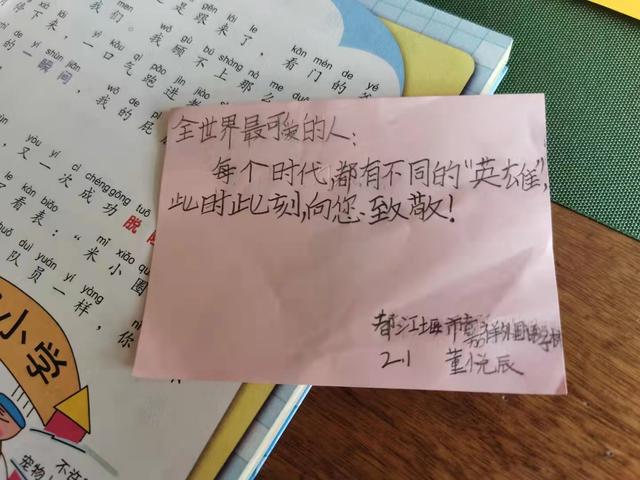 全世界最可爱的人：
每个时代,都有不同的“英雄”,
此时此刻,向您致敬!
都江堰市嘉祥外国语学校
2.1 董悦辰
是跟来了，
kàn mén de yé
停下来，看门的
我们。我顾不上那么
shùn jiān
的一瞬间，一口气跑进
，我的屁
yòu yí cì chéng gōng tuō
，又一次成功脱
le kàn biǎo
了看表：“米小圈
duì yuán yí yàng
队员一样，你
小学
宠物
不许